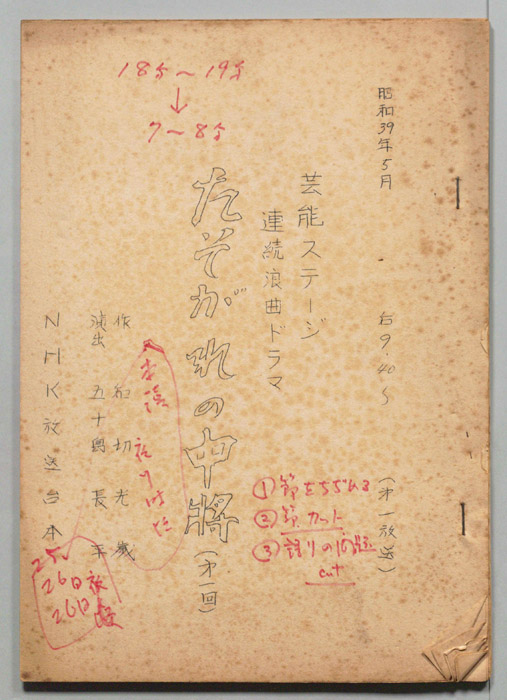 昭和39年5月
右9.40〜
(第一放送)
芸能ステージ
連続浪曲ドラマ
たそがれの中將(第一回)
作 切光歳
演出 五十島長平
NHK放送台本
18分〜19分
↓
7〜8分
①節をちぢめる
②節カット
③語りの問題
cut
25
26日放送
26日